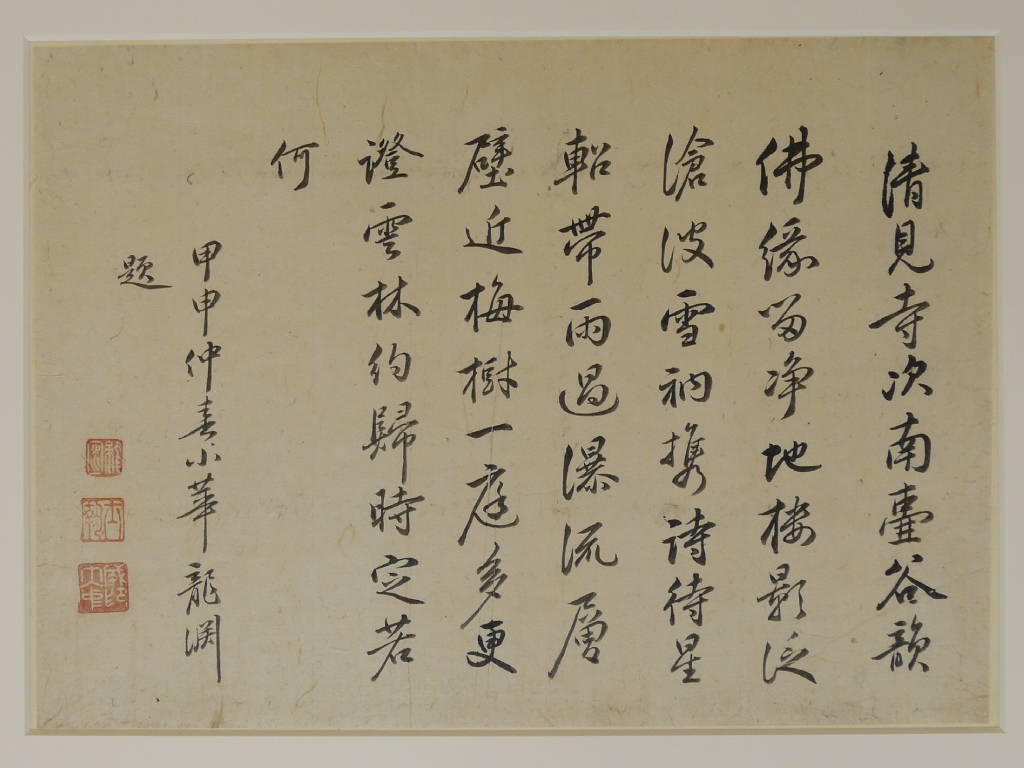 清見寺次南臺谷韻
佛緣留净地樓影泛
滄波雪衲攜詩待星
軺帶雨過瀑流層
壁近梅樹一庭多更
證雲林約歸時定若
何
甲申仲春小華龍淵
題